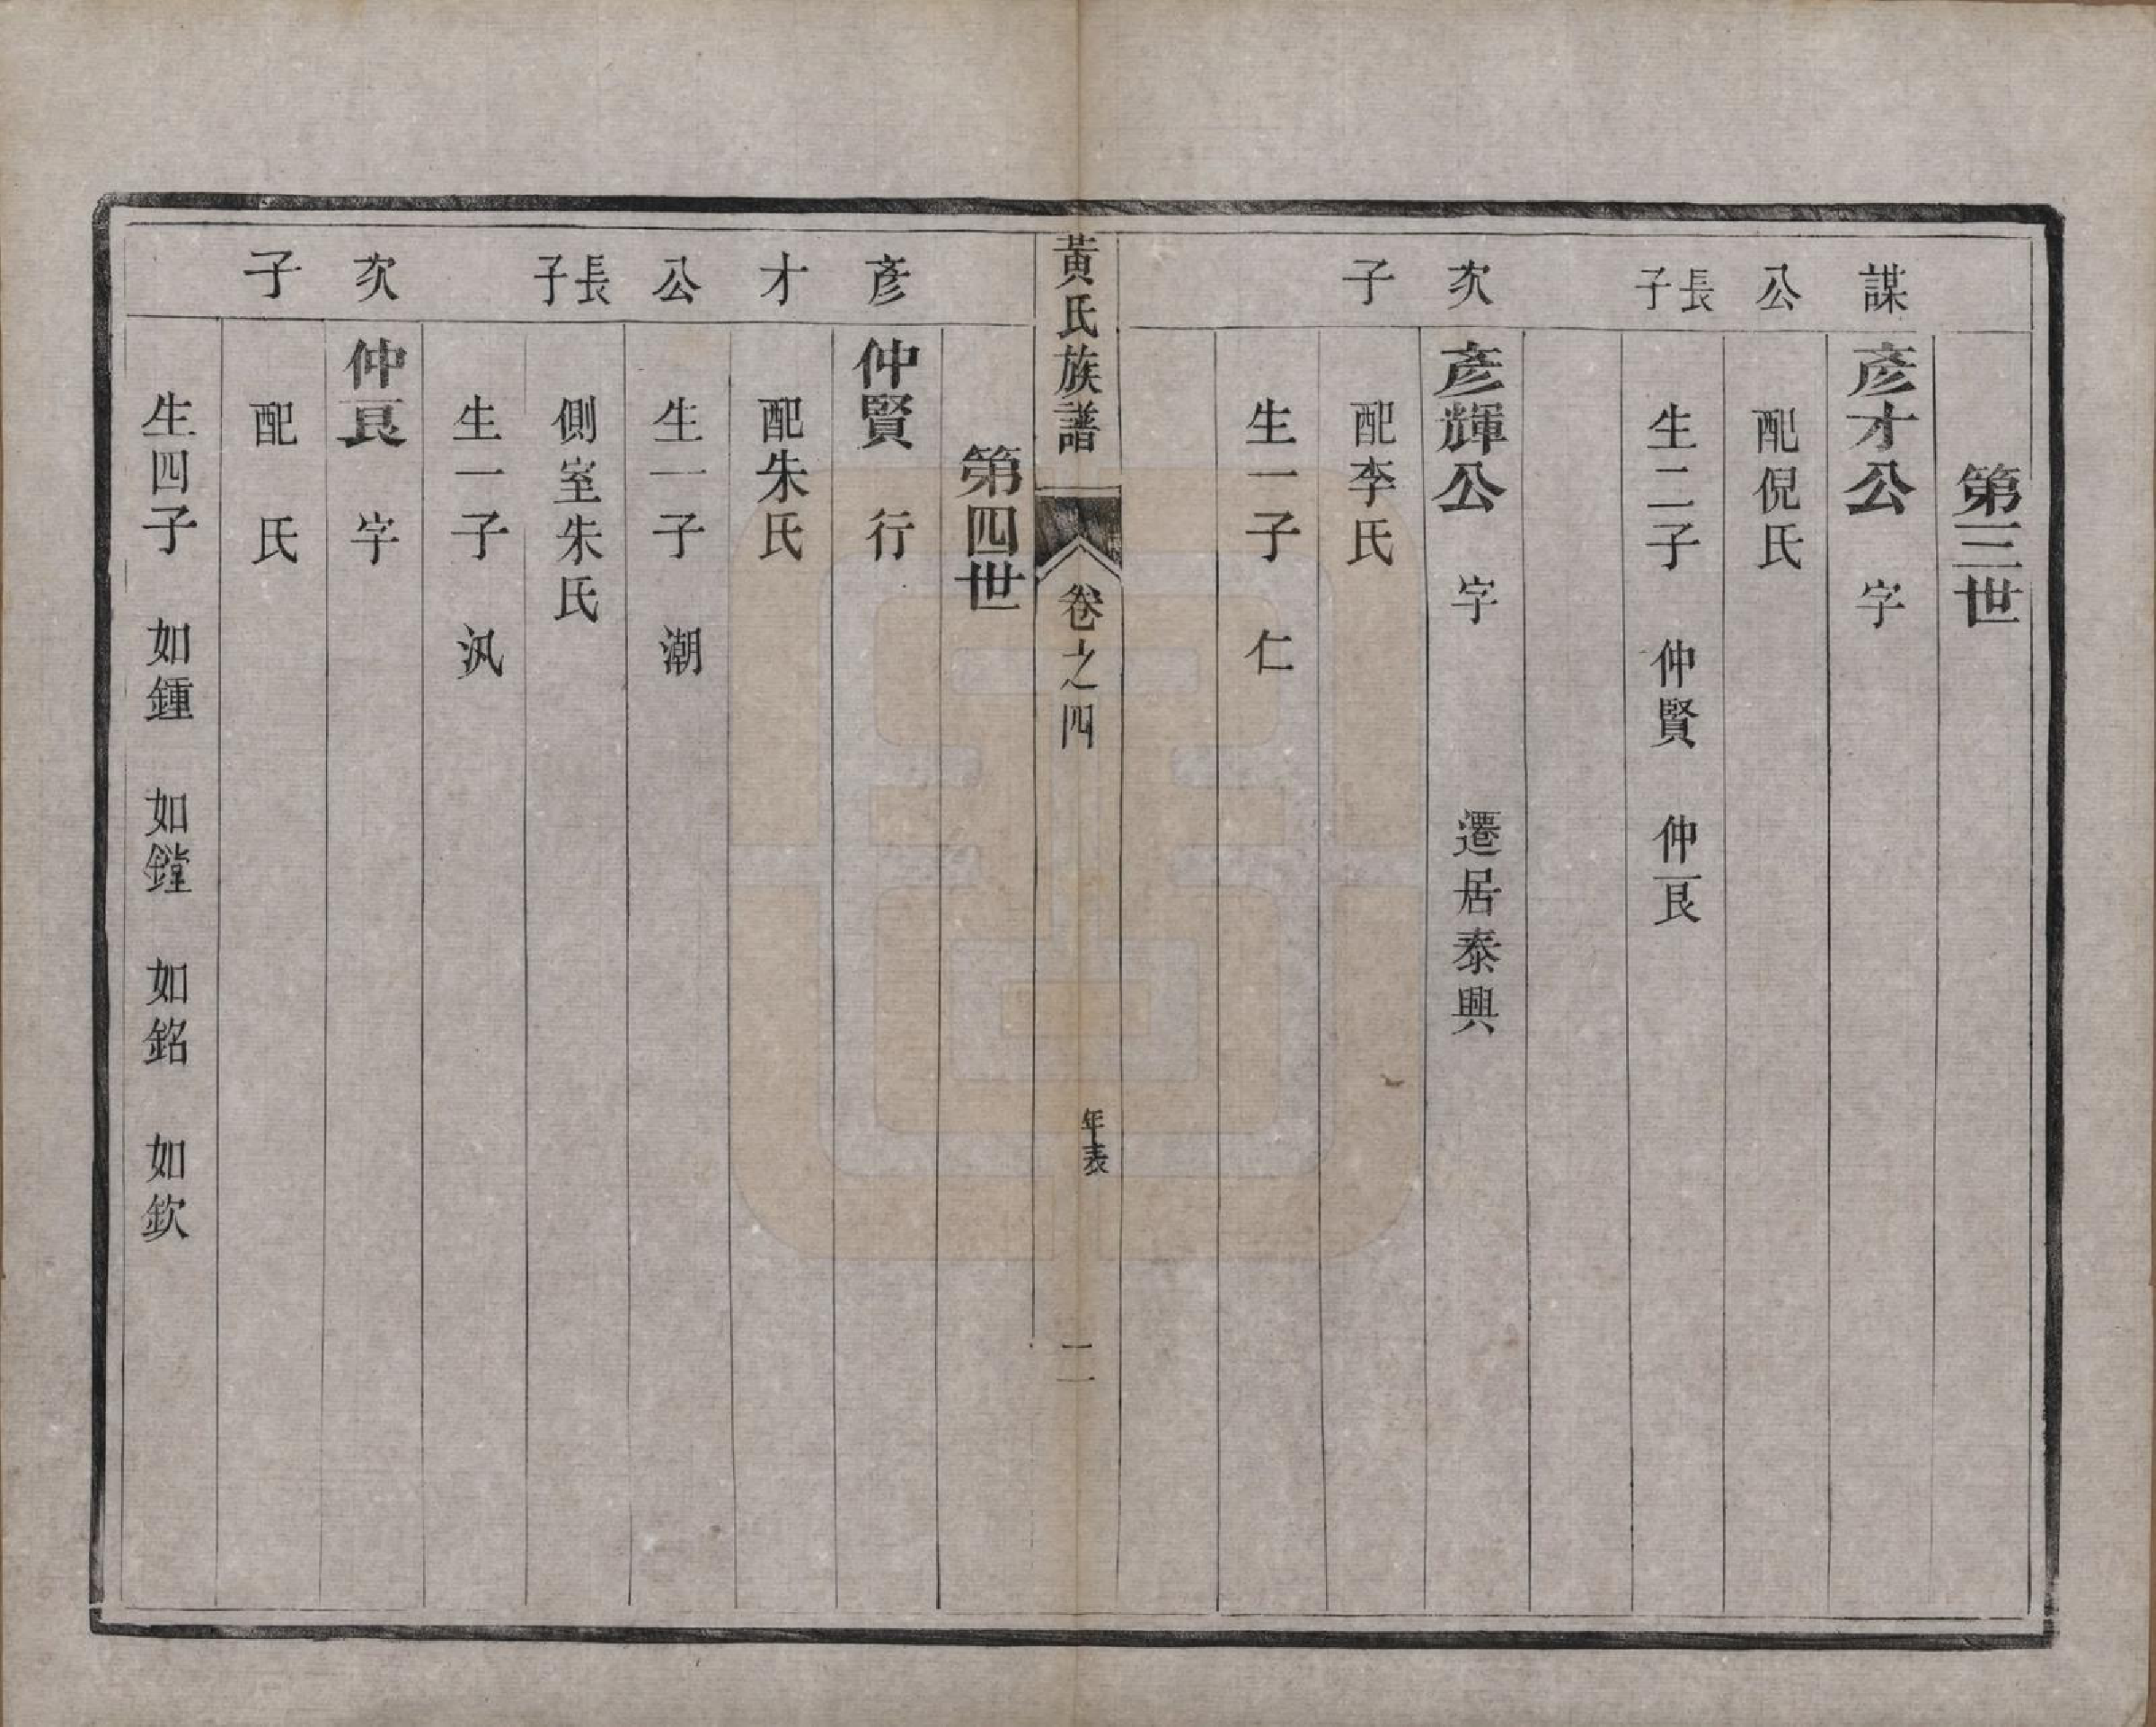 第三世
謀公長子
彥才公　字
配倪氏
生二子　仲賢　仲良
次子
彥輝公　字　遷居泰興
配李氏
生一子　仁
黃氏族譜　卷之四　年表　二
第四世
彥才公長子
仲賢　行
配朱氏
生一子　潮
側室朱氏
生一子　汎
次子
仲良　字
配　氏
生四子　如鍾　如鏜　如銘　如欽